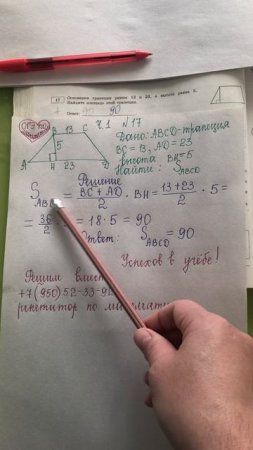 Основания трапеции равны 13 и 23, а высота равна 5.
Найдите площадь этой трапеции.
Ответ: 90
Ч.1 №17
B 13 C
5
A H 23 D
Дано: ABCD-трапеция
BC = 13, AD = 23
высота BH=5
Найти: S ABCD
Решение
S ABCD = BC + AD / 2 · BH = 13+23 / 2 · 5 =
= 36 / 2 · = 18 · 5 = 90
Ответ: S ABCD = 90
Успехов в учёбе!
Решим
+7(950)52-33-
репетитор по